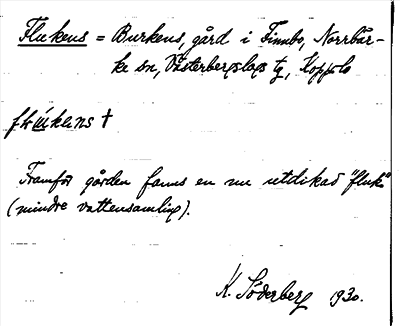 Flukens = Burkens, gård i Finnbo, Norrbär-
ke sn, Västerbergslags tg, Kopp.lo
flúkans †
Framför gården fanns en nu utdikad "fluk"
(mindre vattensamling).
K. Söderberg 1930.